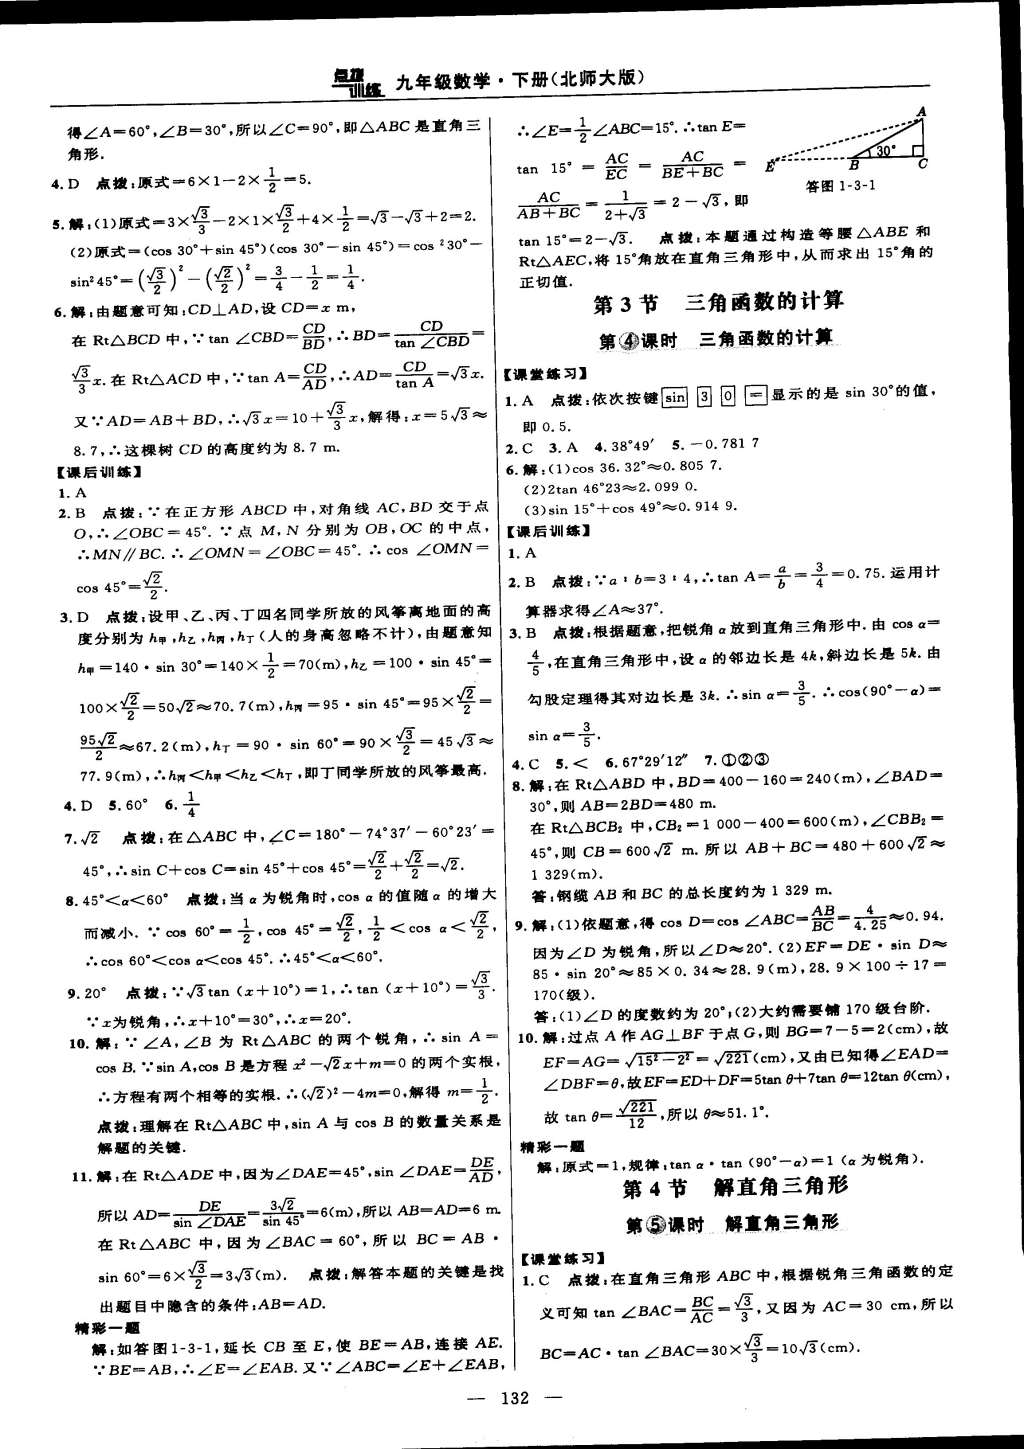 点拨训练 九年级数学·下册(北师大版)
得∠A=60°,∠B=30°,所以∠C=90°,即△ABC是直角三
角形.
4. D 点拨:原式=6×1-2×1/2=5.
5. 解:(1)原式=3×√3/3-2×1×√3/2+4×1/2=√3-√3+2=2.
(2)原式=(cos 30°+sin 45°)(cos 30°-sin 45°)=cos²30°-
sin²45°=(√3/2)²-(√2/2)²=3/4-1/2=1/4.
6. 解:由题意可知:CD⊥AD,设CD=x m,
在Rt△BCD中,∵tan ∠CBD=CD/BD,∴BD=CD/tan ∠CBD=
√3/3 x.在Rt△ACD中,∵tan A=CD/AD,∴AD=CD/tan A=√3x.
又∵AD=AB+BD,∴√3x=10+√3/3 x,解得:x=5√3≈
8.7,∴这棵树CD的高度约为8.7 m.
【课后训练】
1. A
2. B 点拨:∵在正方形ABCD中,对角线AC,BD交于点
O,∴∠OBC=45°.∵点M,N分别为OB,OC的中点,
∴MN∥BC.∴∠OMN=∠OBC=45°.∴cos ∠OMN=
cos 45°=√2/2.
3. D 点拨:设甲、乙、丙、丁四名同学所放的风筝离地面的高
度分别为h甲,h乙,h丙,h丁(人的身高忽略不计),由题意知
h甲=140·sin 30°=140×1/2=70(m),h乙=100·sin 45°=
100×√2/2=50√2≈70.7(m),h丙=95·sin 45°=95×√2/2=
95√2/2≈67.2(m),h丁=90·sin 60°=90×√3/2=45√3≈
77.9(m),∴h丙<h甲<h乙<h丁,即丁同学所放的风筝最高.
4. D 5. 60° 6. 1/4
7. √2 点拨:在△ABC中,∠C=180°-74°37′-60°23′=
45°,∴sin C+cos C=sin 45°+cos 45°=√2/2+√2/2=√2.
8. 45°<α<60° 点拨:当α为锐角时,cos α的值随α的增大
而减小.∵cos 60°=1/2,cos 45°=√2/2,1/2<cos α<√2/2,
∴cos 60°<cos α<cos 45°.∴45°<α<60°.
9. 20° 点拨:∵√3tan (x+10°)=1,∴tan (x+10°)=√3/3.
∵x为锐角,∴x+10°=30°,∴x=20°.
10. 解:∵∠A,∠B为Rt△ABC的两个锐角,∴sin A=
cos B.∵sin A,cos B是方程x²-√2x+m=0的两个实根,
∴方程有两个相等的实根.∴(√2)²-4m=0,解得m=1/2.
点拨:理解在Rt△ABC中,sin A与cos B的数量关系是
解题的关键.
11. 解:在Rt△ADE中,因为∠DAE=45°,sin ∠DAE=DE/AD,
所以AD=DE/sin ∠DAE=3√2/sin 45°=6(m),所以AB=AD=6 m.
在Rt△ABC中,因为∠BAC=60°,所以BC=AB·
sin 60°=6×√3/2=3√3(m). 点拨:解答本题的关键是找
出题目中隐含的条件:AB=AD.
精彩一题
解:如答图1-3-1,延长CB至E,使BE=AB,连接AE.
∵BE=AB,∴∠E=∠EAB.又∵∠ABC=∠E+∠EAB,
∴∠E=1/2∠ABC=15°.∴tan E=
tan 15°=AC/EC=AC/(BE+BC)=
AC/(AB+BC)=1/(2+√3)=2-√3,即
A
E
B
30°
C
答图1-3-1
tan 15°=2-√3. 点拨:本题通过构造等腰△ABE和
Rt△AEC,将15°角放在直角三角形中,从而求出15°角的
正切值.
第3节 三角函数的计算
第④课时 三角函数的计算
【课堂练习】
1. A 点拨:依次按键sin 3 0 =显示的是sin 30°的值,
即0.5.
2. C 3. A 4. 38°49′ 5. -0.781 7
6. 解:(1)cos 36.32°≈0.805 7.
(2)2tan 46°23≈2.099 0.
(3)sin 15°+cos 49°≈0.914 9.
【课后训练】
1. A
2. B 点拨:∵a∶b=3∶4,∴tan A=a/b=3/4=0.75.运用计
算器求得∠A≈37°.
3. B 点拨:根据题意,把锐角α放到直角三角形中.由cos α=
4/5,在直角三角形中,设α的邻边长是4k,斜边长是5k.由
勾股定理得其对边长是3k.∴sin α=3/5.∴cos(90°-α)=
sin α=3/5.
4. C 5. < 6. 67°29′12″ 7. ①②③
8. 解:在Rt△ABD中,BD=400-160=240(m),∠BAD=
30°,则AB=2BD=480 m.
在Rt△BCB₂中,CB₂=1 000-400=600(m),∠CBB₂=
45°,则CB=600√2 m.所以AB+BC=480+600√2≈
1 329(m).
答:钢缆AB和BC的总长度约为1 329 m.
9. 解:(1)依题意,得cos D=cos ∠ABC=AB/BC=4/4.25≈0.94.
因为∠D为锐角,所以∠D≈20°.(2)EF=DE·sin D≈
85·sin 20°≈85×0.34≈28.9(m),28.9×100÷17=
170(级).
答:(1)∠D的度数约为20°;(2)大约需要铺170级台阶.
10. 解:过点A作AG⊥BF于点G,则BG=7-5=2(cm),故
EF=AG=√(15²-2²)=√221(cm),又由已知得∠EAD=
∠DBF=θ,故EF=ED+DF=5tan θ+7tan θ=12tan θ(cm),
故tan θ=√221/12,所以θ≈51.1°.
精彩一题
解:原式=1,规律:tan α·tan (90°-α)=1 (α为锐角).
第4节 解直角三角形
第⑤课时 解直角三角形
【课堂练习】
1. C 点拨:在直角三角形ABC中,根据锐角三角函数的定
义可知tan ∠BAC=BC/AC=√3/3,又因为AC=30 cm,所以
BC=AC·tan ∠BAC=30×√3/3=10√3(cm).
— 132 —